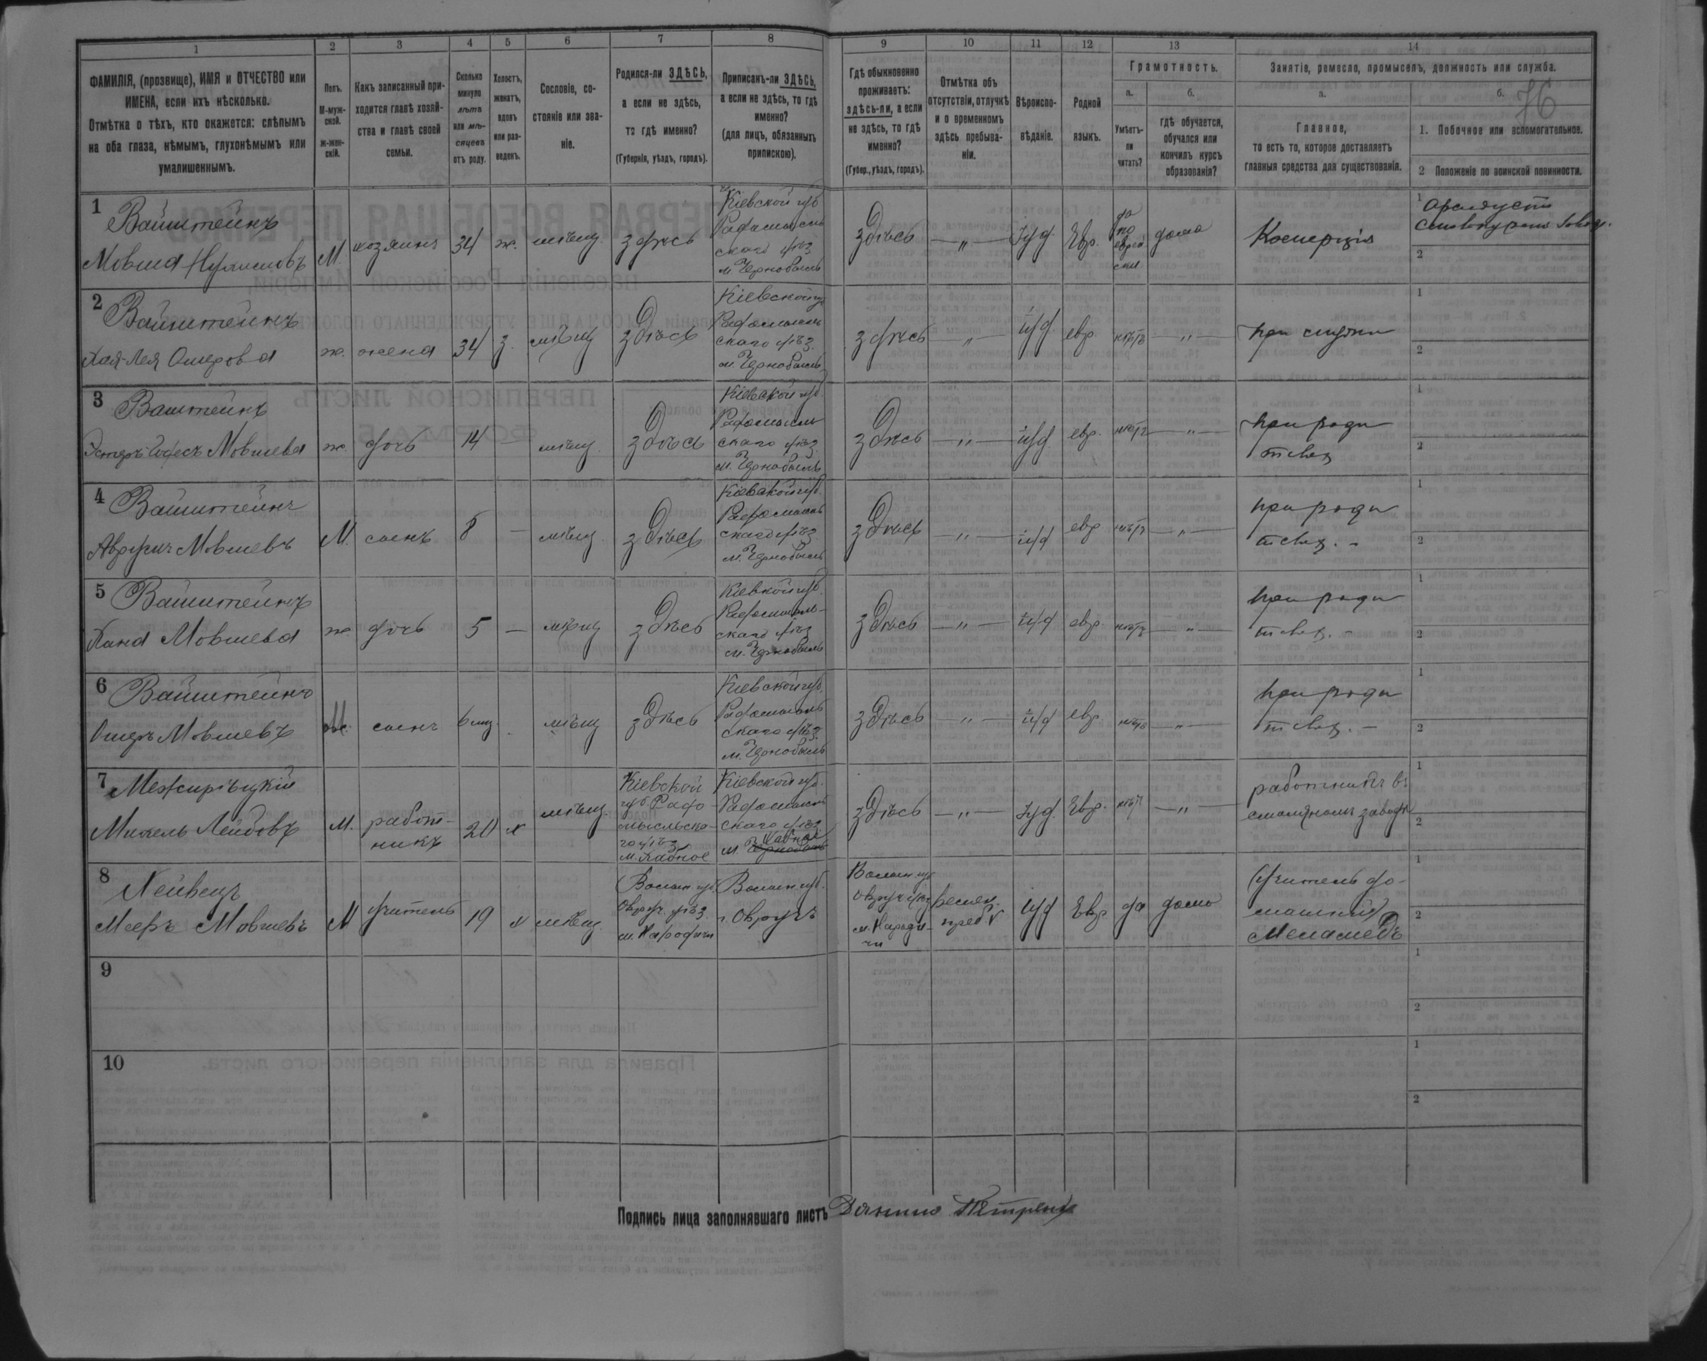 1 2 3 4 5 6 7 8 9 10 11 12 13 14
ФАМИЛІЯ, (прозвище), ИМЯ и ОТЧЕСТВО или ИМЕНА, если ихъ нѣсколько.
Отмѣтка о тѣхъ, кто окажется: слѣпымъ на оба глаза, нѣмымъ, глухонѣмымъ или умалишеннымъ.
Полъ.
М-мужской.
Ж-женскій.
Какъ записанный приходится главѣ хозяйства и главѣ своей семьи.
Сколько минуло лѣтъ или мѣсяцевъ отъ роду.
Холостъ, женатъ, вдовъ или разведенъ.
Сословіе, состояніе или званіе.
Родился-ли ЗДѢСЬ, а если не здѣсь, то гдѣ именно?
(Губернія, уѣздъ, городъ).
Приписанъ-ли ЗДѢСЬ, а если не здѣсь, то гдѣ именно?
(для лицъ, обязанныхъ припискою).
Гдѣ обыкновенно проживаетъ: здѣсь-ли, а если не здѣсь, то гдѣ именно?
(Губер., уѣздъ, городъ).
Отмѣтка объ отсутствіи, отлучкѣ и о временномъ здѣсь пребываніи.
Вѣроисповѣданіе.
Родной языкъ.
Грамотность.
а.
Умѣетъ-ли читать?
б.
гдѣ обучается, обучался или кончилъ курсъ образованія?
Занятіе, ремесло, промыселъ, должность или служба.
а.
Главное,
то есть то, которое доставляетъ главныя средства для существованія.
б.
76
1. Побочное или вспомогательное.
2 Положеніе по воинской повинности.
1 Вайнштейнъ
Мовша
М. хозяинъ 34 ж. мѣщ. здѣсь
Кіевской губ Радомысльскаго уѣз м. Чернобыль
здѣсь — „ — Іуд Евр. да по еврейски дома Комерція
1
2
2 Вайнштейнъ
Хая-Лея Ошерова
ж. жена 34 з. мѣщ здѣсь
Кіевской губ Радомысльскаго уѣз. м. Чернобыль
здѣсь — „ — іуд евр нѣтъ — „ — при мужѣ
1
2
3 Вайнштейнъ
Мовшева
ж. дочь 14 мѣщ. здѣсь
Кіевской губ. Радомысльскаго уѣз. м. Чернобыль
здѣсь — „ — іуд евр. нѣтъ — „ — при родителяхъ
1
2
4 Вайнштейнъ
Мовшевъ
М. сынъ 8 — мѣщ. здѣсь
Кіевской губ. Радомысльскаго уѣз м. Чернобыль
здѣсь — „ — іуд евр нѣтъ — „ — при родителях. -
1
2
5 Вайнштейнъ
Хана Мовшева
ж дочь 5 — мѣщ здѣсь
Кіевской губ. Радомысльскаго уѣз м. Чернобыль
здѣсь — „ — іуд евр. нѣтъ — „ — при родителях. -
1
2
6 Вайнштейнъ
Ошеръ Мовшевъ
сынъ 6 мѣщ здѣсь
Кіевской губ. Радомысльскаго уѣз. м. Чернобыль
здѣсь — „ — іуд евр нѣтъ — „ — при родителях. -
1
2
7 Межирѣцкій
Лейбовъ
М. работникъ 20 х мѣщ. Кіевской губ. Радомысльскаго уѣз м. Хабное
Кіевской губ. Радомысльскаго уѣз м. Хабное
здѣсь — „ — Іуд Евр. нѣтъ — „ — работникъ въ смоляномъ заводѣ
1
2
8
Мееръ Мовшевъ
М учитель 19 х мѣщ. Волын. губ Овруч. уѣз. м. Народичи
Волын. губ. г. Овручъ
Волын. губ Овруч. уѣз м. Народичи
іуд Евр да дома Учитель домашній Меламедъ
1
2
9
1
2
10
1
2
Подпись лица заполнявшаго листъ